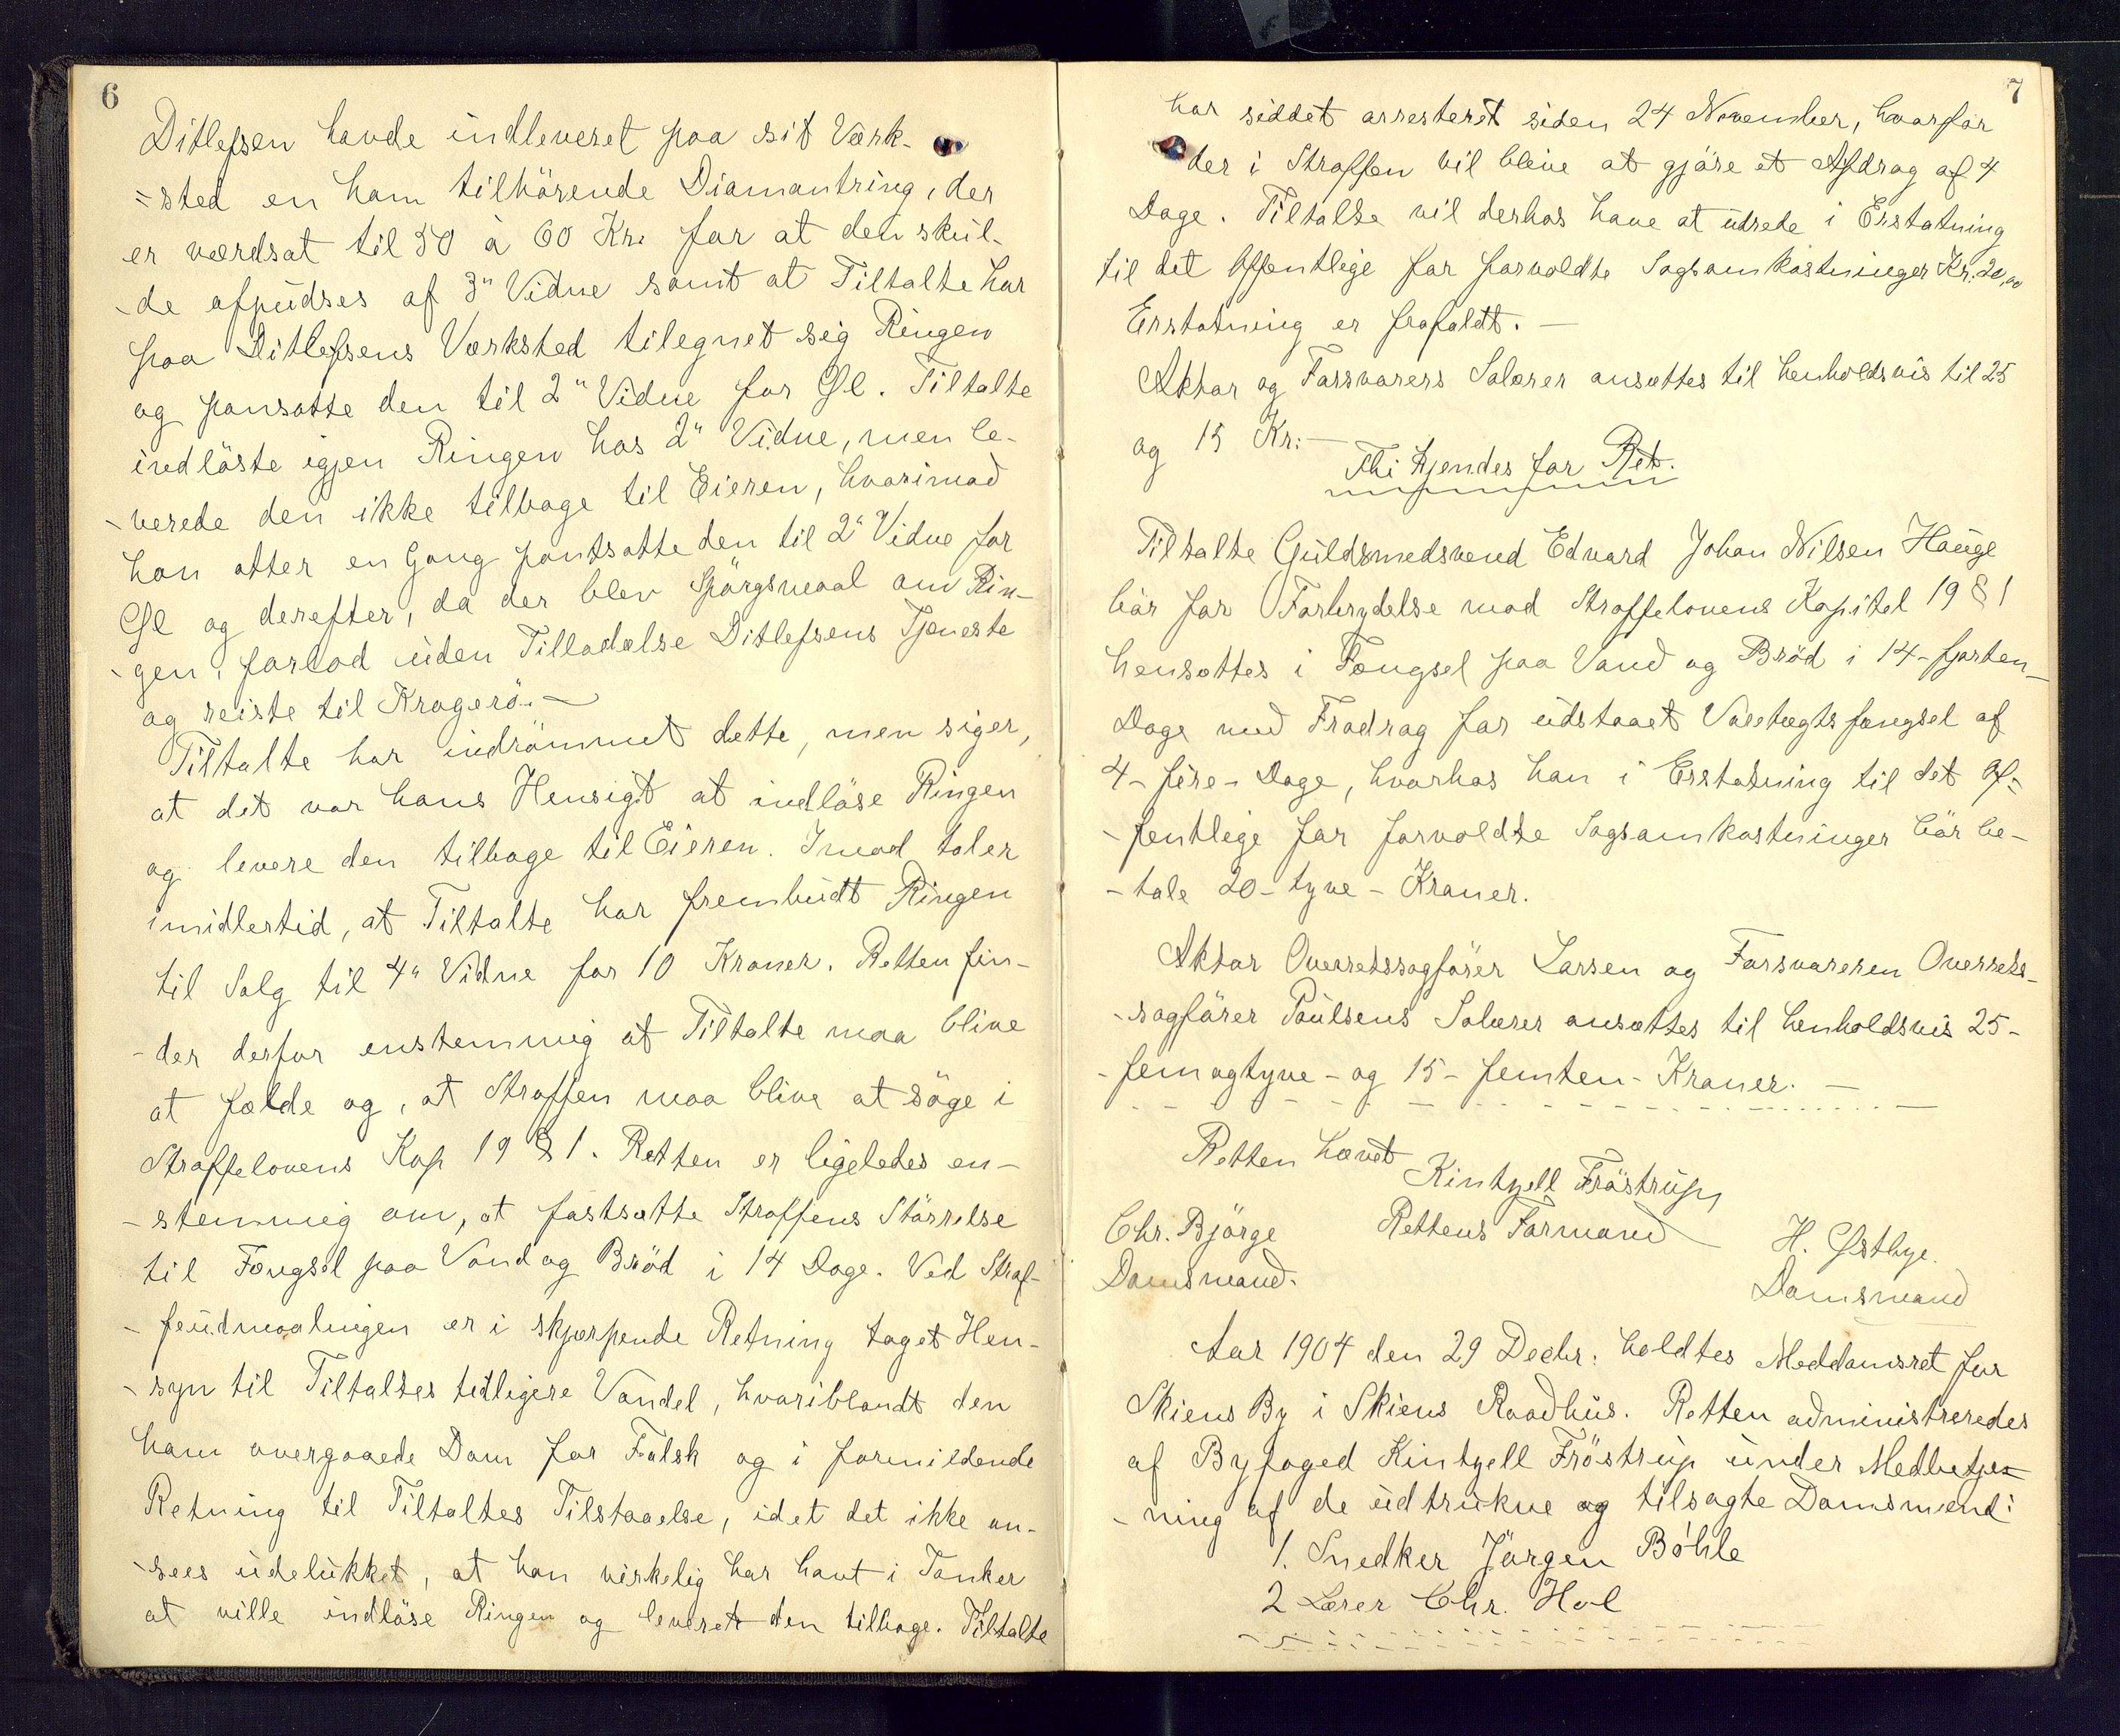 6
Ditlefsen havde indleveret paa sit Værk-
=sted en ham tilhörende Diamantring, der
er værdsat til 50 à 60 Kr. for at den skul-
-de afpudses af 3" Vidne samt at Tiltalte har
paa Ditlefsens Værksted tilegnet sig Ringen
og pansatte den til 2" Vidne for Øl. Tiltalte
indlöste igjen Ringen hos 2" Vidne, men le-
-verede den ikke tilbage til Eieren, hvorimod
han atter en Gang pantsatte den til 2" Vidne for
Øl og derefter, da der blev Spörgsmaal om Rin-
-gen, forlod uden Tilladelse Ditlefsens Tjeneste
og reiste til Kragerö. —
Tiltalte har indrömmet dette, men siger,
at det var hans Hensigt at indlöse Ringen
og levere den tilbage til Eieren. Imod taler
imidlertid, at Tiltalte har frembudt Ringen
til Salg til 4" Vidne for 10 Kroner. Retten fin-
-der derfor enstemmig at Tiltalte maa blive
at fælde og, at Straffen maa blive at söge i
Straffelovens Kap 19 § 1. Retten er ligeledes en-
-stemmig om, at fastsætte Straffens Störrelse
til Fængsel paa Vand og Bröd i 14 Dage. Ved Straf-
-feudmaalingen er i skjærpende Retning taget Hen-
-syn til Tiltaltes tidligere Vandel, hvoriblandt den
ham overgaaede Dom for Falsk og i formildende
Retning til Tiltaltes Tilstaaelse, idet det ikke an-
-sees udelukket, at han virkelig har havt i Tanker
at ville indlöse Ringen og leveret den tilbage. Tiltalte
7
har siddet arresteret siden 24 November, hvorfor
der i Straffen vil blive at gjöre et Afdrag af 4
Dage. Tiltalte vil derhos have at udrede i Erstatning
til det Offentlige for forvoldte Sagsomkostninger Kr. 20,00
Erstatning er frafaldt. —
Aktor og Forsvarers Salærer ansættes til henholdsvis til 25
og 15 Kr: —
Thi kjendes for Ret.
Tiltalte Guldsmedsvend Edvard Johan Nilsen Hauge
bör for Forbrydelse mod Straffelovens Kapitel 19 § 1
hensættes i Fængsel paa Vand og Bröd i 14-fjorten-
Dage med Fradrag for udstaaet Varetægtsfængsel af
4-fire-Dage, hvorhos han i Erstatning til det Of=
-fentlige for forvoldte Sagsomkostninger bör be-
-tale 20-tyve-Kroner.
Aktor Overretssagförer Larsen og Forsvareren Overrets-
-sagförer Paulsens Salærer ansættes til henholdsvis 25-
-femogtyve-og 15-femten-Kroner. —
Retten hævet
Kintzell Fröstrup
Chr. Bjørge Rettens Formand H. Østbye.
Domsmand. Domsmand
Aar 1904 den 29 Decbr. holdtes Meddomsret for
Skiens By i Skiens Raadhus. Retten administreredes
af Byfoged Kintzell Fröstrup under Medbetjen-
-ning af de udtrukne og tilsagte Domsmænd:
1. Snedker Jörgen Böhle
2 Lærer Chr. Hol